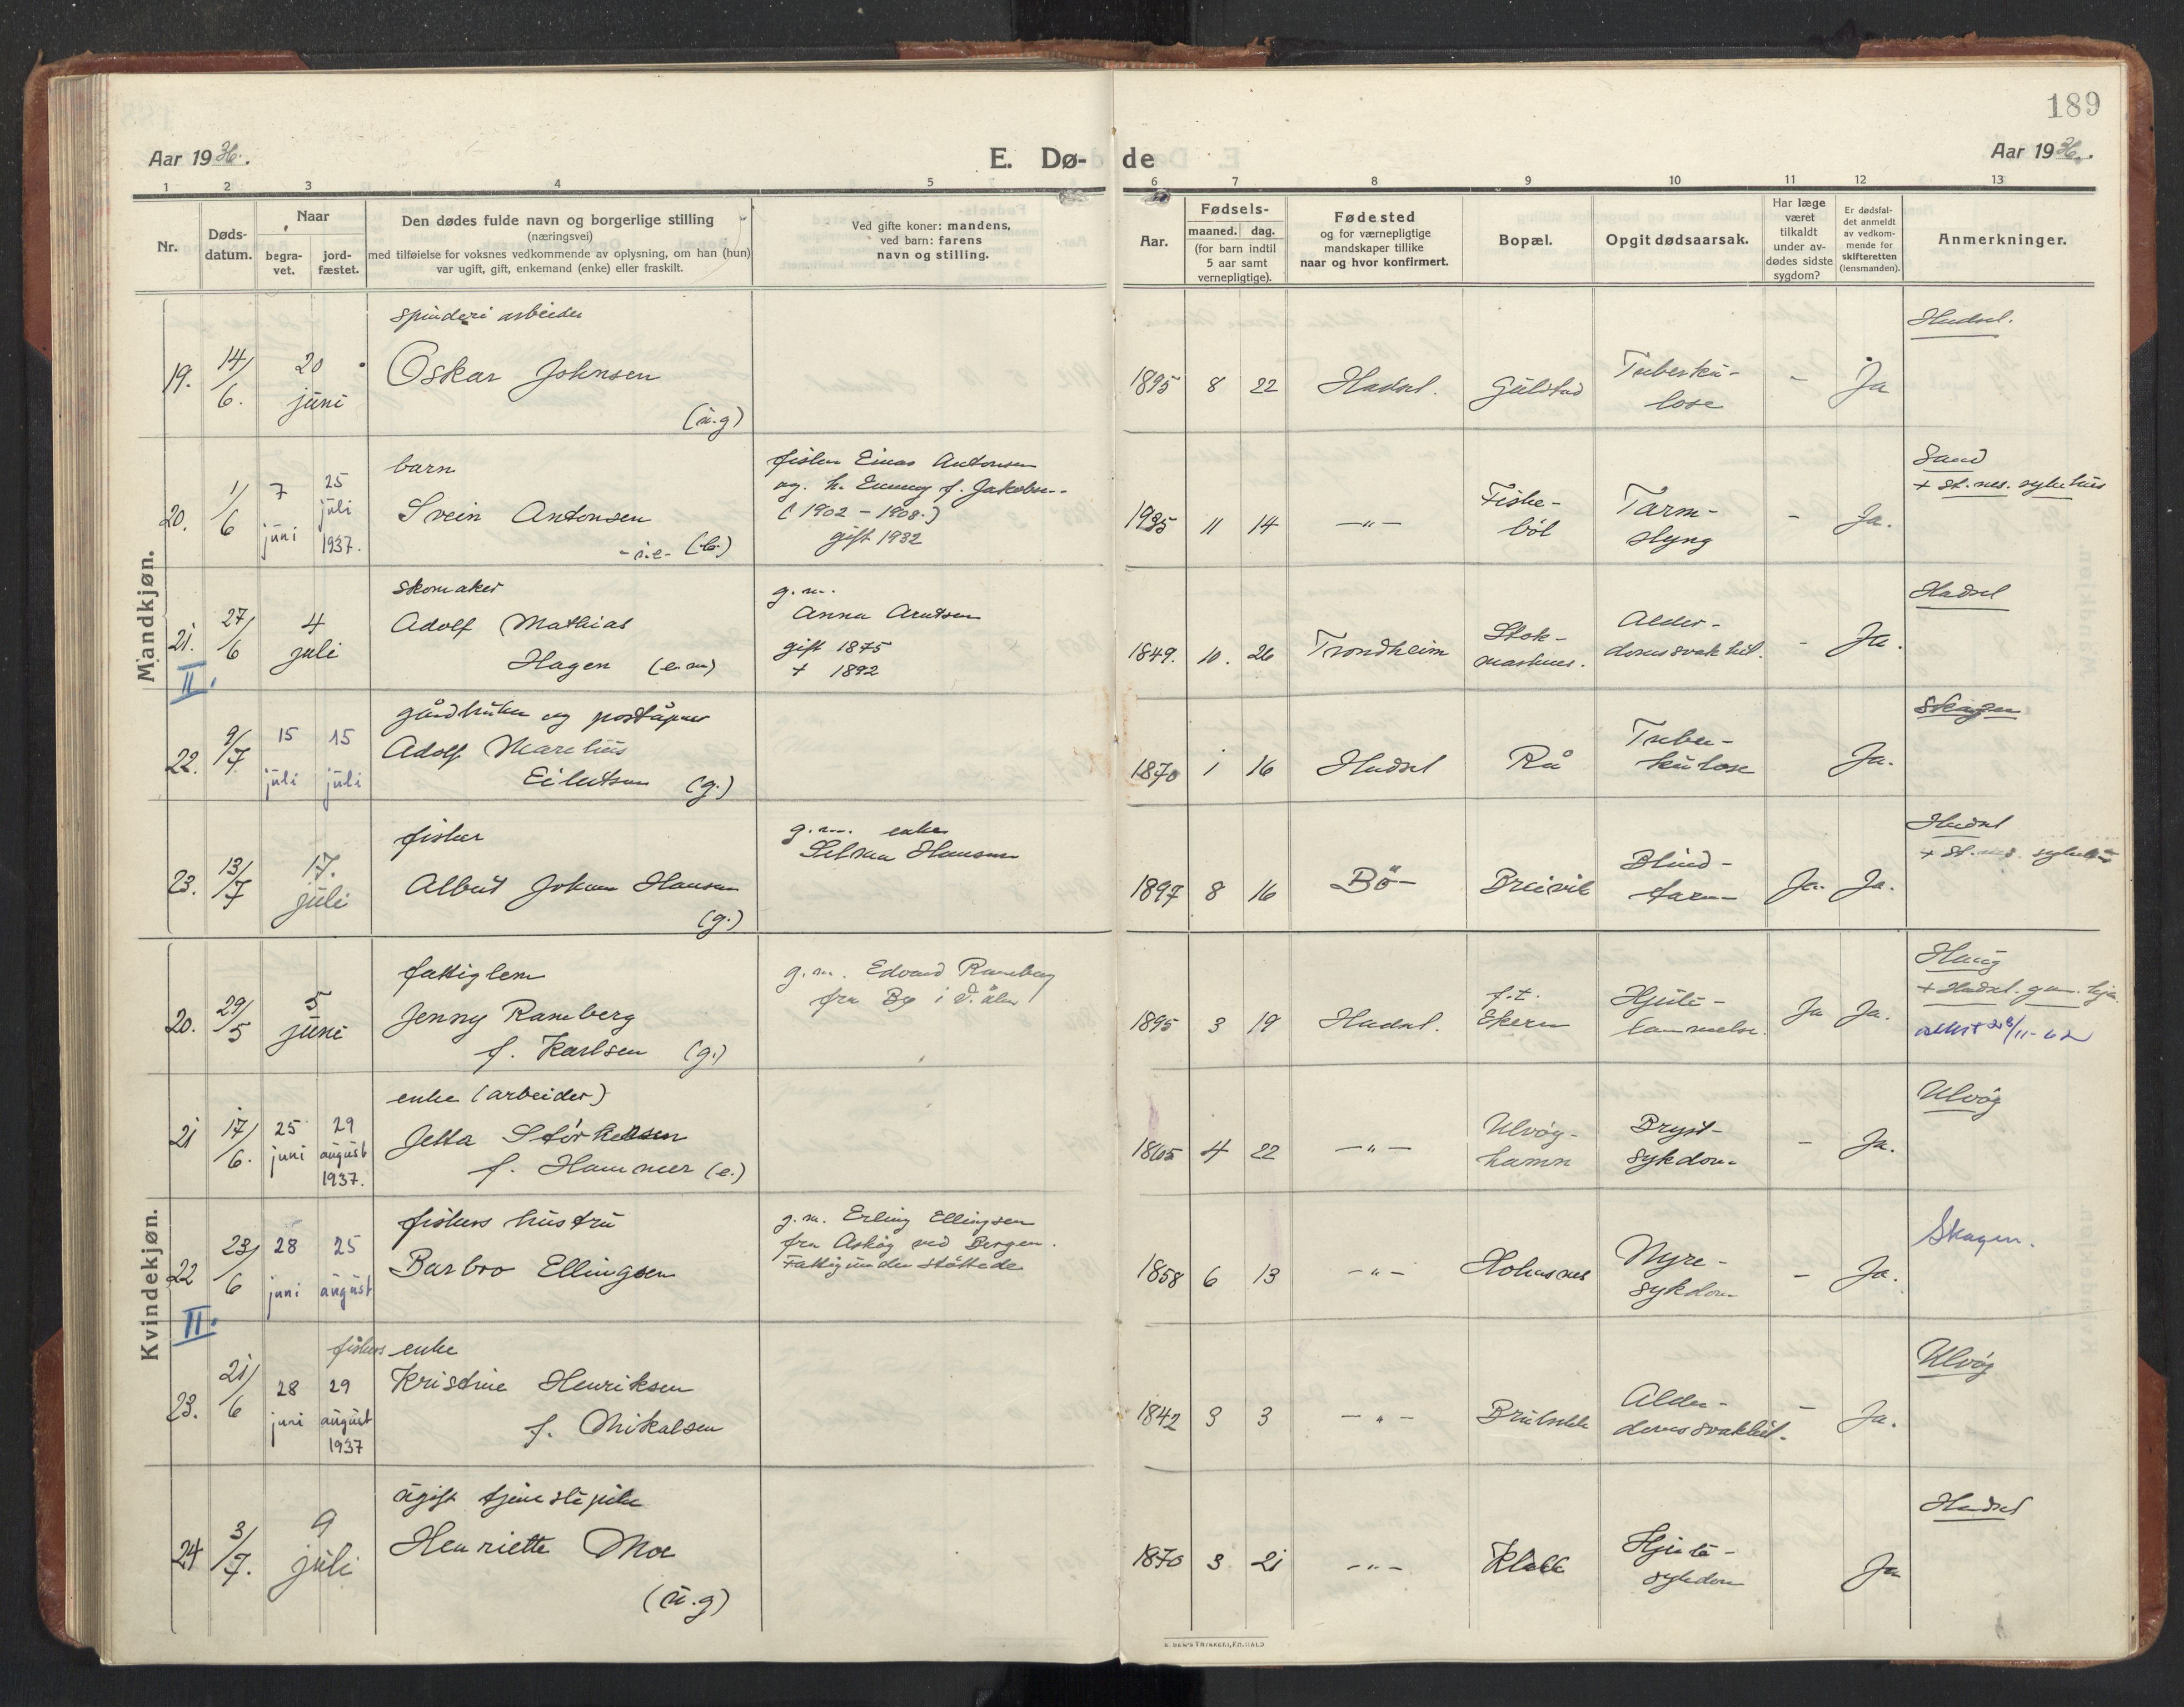 189
Aar 1936.
E. Dø-
de
Aar 1936.
1 2 3 4 5 6 7 8 9 10 11 12 13
Nr.
Døds-
datum.
Naar
begra-
vet.
jord-
fæstet.
Den dødes fulde navn og borgerlige stilling
(næringsvei)
med tilføielse for voksnes vedkommende av oplysning, om han (hun)
var ugift, gift, enkemand (enke) eller fraskilt.
Ved gifte koner: mandens,
ved barn: farens
navn og stilling.
Aar.
Fødsels-
maaned. dag.
(for barn indtil
5 aar samt
vernepligtige).
Fødested
og for værnepligtige
mandskaper tillike
naar og hvor konfirmert.
Bopæl.
Opgit dødsaarsak.
Har læge
været
tilkaldt
under av-
dødes sidste
sygdom?
Er dødsfal-
det anmeldt
av vedkom-
mende for
skifteretten
(lensmanden).
Anmerkninger.
Mandkjøn.
19. 14/6. 20 juni
spinderi arbeider
Oskar Johnsen
(u.g)
1895 8 22 Hadsel. Gulstad
Tuberku-
lose
- Ja
Hadsel.
20. 1/6 7 juni 25 juli 1937.
barn
Svein Antonsen
- i.e- (b.)
fisker Einar Antonsen
og h. Emmy f. Jakobsen.
(1902 - 1908.)
gift 1932
1935 11 14 -"-
Fiske-
bøl
Tarm-
slyng
- Ja.
Sand
+ St.nes. sykehus
21. 27/6 4 juli
II.
skomaker
Adolf Mathias
Hagen (e.m)
g.m.
Anna Arntsen
gift 1875
+ 1892
1849. 10. 26 Trondheim
Stok-
marknes.
Alder-
domssvakhet.
- Ja.
Hadsel
22. 9/7 15 juli 15 juli
gårdbruker og poståpner
Adolf Marelius
Eilertsen (g.)
1870 1 16 Hadsel Rå
Tuber-
kulose
Ja.
Skagen
23. 13/7 17. juli
fisker
Albert Johan Hansen
(g.)
g.m. enke
Selma Hansen
1897 8 16 Bö- Breivik
Blind-
tarm
Ja. Ja.
Hadsel
+ St.nes. sykehus
Kvindekjøn.
20. 29/5 5 juni
fattiglem
Jenny Ramberg
f. Karlsen (g.)
g.m. Edvard Ramberg
fra Bø i V.ålen
1895 3 19 Hadsel.
f.t.
Ekern
Hjerte-
lammelse.
Ja Ja.
Haug
+ Hadsel. gam. hjem.
attest 28/11-62
21 17/6. 25 juni 29 august 1937.
enke (arbeider)
Jetta Størkersen
f. Hammer (e.)
1865 4 22 -"-
Ulvøy-
hamn
Bryst-
sykdom
- Ja.
Ulvøy
22 23/6 28 juni 25 august
II.
fiskers hustru
Barbro Ellingsen
g.m. Erling Ellingsen
fra Askøy ved Bergen.
Fattigunderstøttede
1858 6 13 -"- Holmsnes
Nyre-
sykdom
- Ja.
Skagen.
23. 21/6 28 juni 29 august 1937
fiskers enke
Kristine Henriksen
f. Mikalsen
1842 3 3 -"-
Alder-
domssvakhet.
- Ja.
Ulvøy
24 3/7. 9 juli
ugift tjenestepike
Henriette Moe
(u.g)
1870 3 21 -"- Klakk
Hjerte-
sykdom
Ja
Hadsel